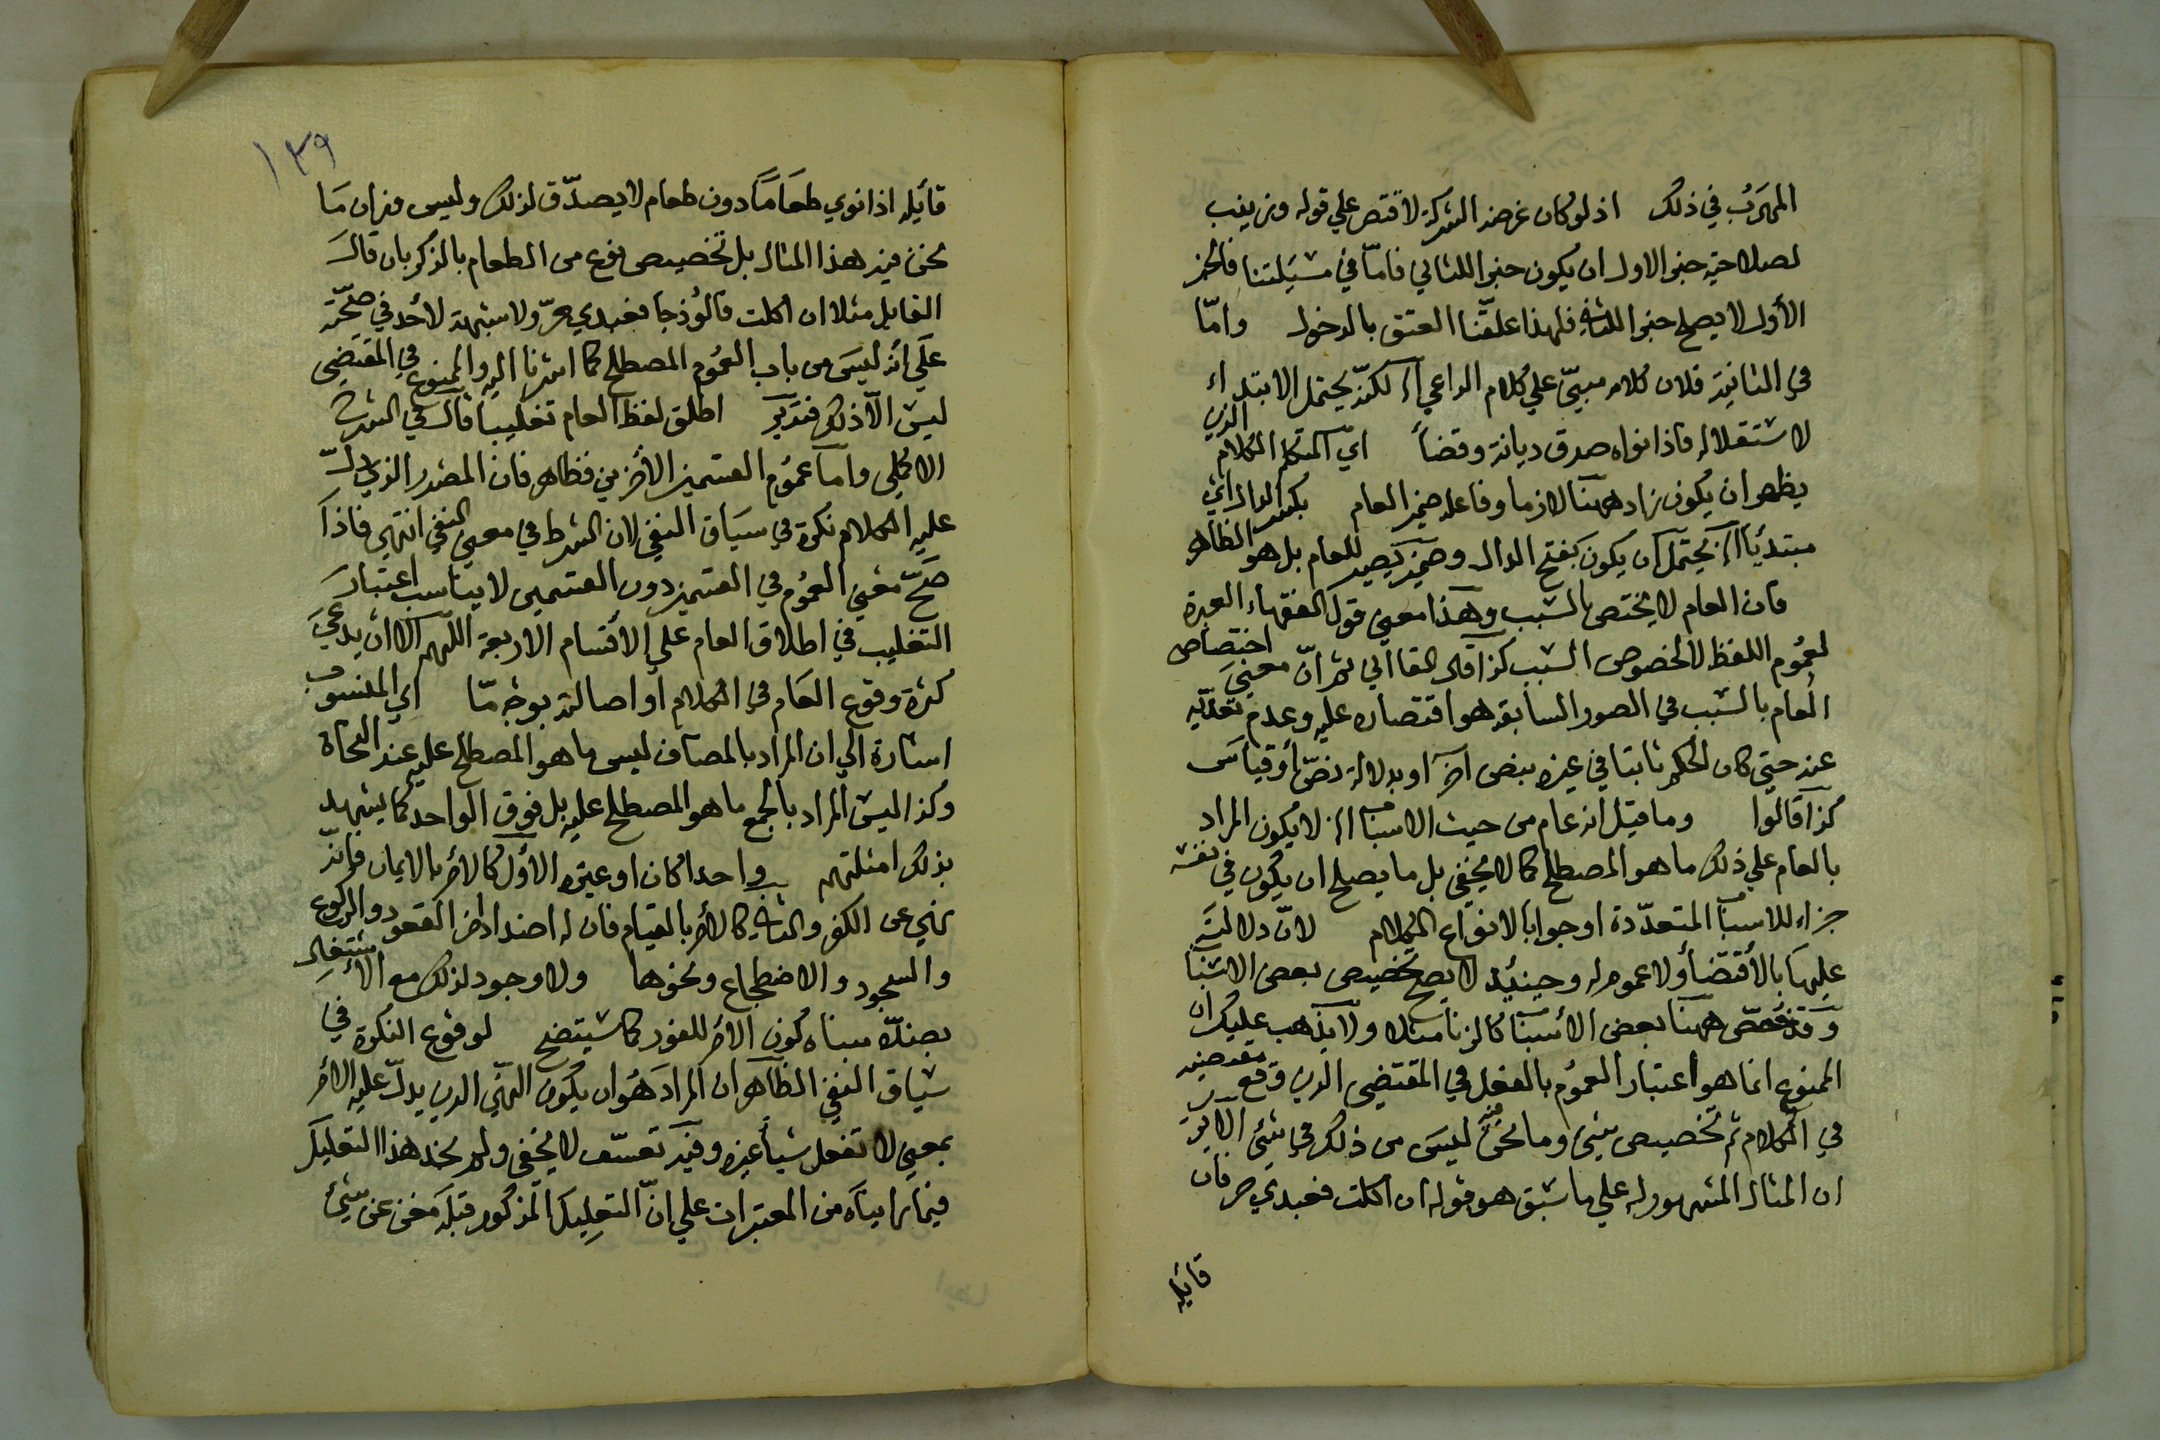 المهرب في ذلك اذ لو كان غرضه الشركة لاقتصر علي قوله وزينب
لصلاحية خبر الاول ان يكون خبرا للثاني فامّا في مسئلتنا فالخبر
الأول لا يصلح خبرا للثاني فلهذا علقنا العتق بالدخول وامّا
في الثانية فلان كلامه مبنيّ علي كلام الداعي الخ لكنّه يحتمل الابتداء
لاستقلاله فاذا نواه صدق ديانة وقضأ اي المتكلم الكلام الذي
يظهر ان يكون زاد ههنا لازما وفاعله ضمير العام بكسر الدال اي
مبتدئا الخ يحتمل ان يكون بفتح الدال وضمير يصير للعام بل هو الظاهر
فان العام لا يختص بالسبب وهذا معني قول الفقهاء العبرة
لعموم اللفظ لا لخصوص السبب كذا قال القاآني ثم انّ معني اختصاص
العام بالسبب في الصور السابقة هو اقتصاره عليه وعدم تعدّيه
عنه حتي كان الحكم ثابتا في غيره بنص آخر او بدلالة نصّ أو قياس
كذا قالوا وما قيل انه عام من حيث الاسباب الخ لا يكون المراد
بالعام علي ذلك ما هو المصطلح كما لا يخفي بل ما يصلح ان يكون في نفسه
جزاء للاسباب المتعدّدة او جوابا لانواع الكلام لانّ دلالته
عليها بالأقتضأ ولا عموم له وحينئذ لا يصح تخصيص بعض الاسباب
وقد خصّ ههنا بعض الأسباب كالزنا مثلا ولا يذهب عليك ان
الممنوع انما هو اعتبار العموم بالفعل في المقتضي الذي وقع
في الكلام ثم تخصيص شيئ وما نحن فيه ليس من ذلك في شيئ الا يري
ان المثال المشهور له علي ما سبق هو قوله ان اكلت فعبدي حر فان
قايله
١٣٩
قائله اذا نوي طعاماً دون طعام لا يصدّق لذلك وليس وزان ما
نحن فيه هذا المثال بل تخصيص نوع من الطعام بالذكر بان قال
القايل مثلا ان اكلت فالوُذجا فعبدي حرّ ولا شبهة لأحد في صحّته
علي انه ليس من باب العموم المصطلح كما اشرنا اليه والممنوع في المقتضي
ليس الّا ذلك فتدبّر اطلق لفظ العام تغليبا قال في الشرح
الاكملي وامّا عموم القسمين الأخرين فظاهر فان المصدر الذي دلّ
عليه الكلام نكرة في سياق النفي لان الشرط في معني النفي انتهي فاذا
صحّ معني العموم في القسمين دون القسمين لا يناسب اعتبار
التغليب في اطلاق العام علي الأقسام الاربعة اللهم الا ان يدعي
كثرة وقوع العام في الكلام او اصالته بوجه مّا اي المنسوب
اشارة الي ان المراد بالمضاف ليس ما هو المصطلح عليه عند النحاة
وكذا ليس المراد بالجمع ما هو المصطلح عليه بل فوق الواحد كما يشهد
بذلك امثلتهم واحدا كان او غيره الأول كالأمر بالايمان فانّه
نهي عن الكفر والثاني كالأمر بالقيام فان له اضدادا من القعود والركوع
والسجود والاضطجاع ونحوها ولا وجود لذلك مع الأشتغال
بضدّه مبناه كون الأمر للفور كما سيتضح لوقوع النكرة في
سياق النفي الظاهر ان المراد هو ان يكون النهّي الذي يدلّ عليه الأمر
بمعني لا تفعل شيأ غيره وفيه تعسّف لا يخفي ولم نجد هذا التعليل
فيما رايناه من المعتبرات علي انّ التعليل المذكور قبله مغن عن شيئ